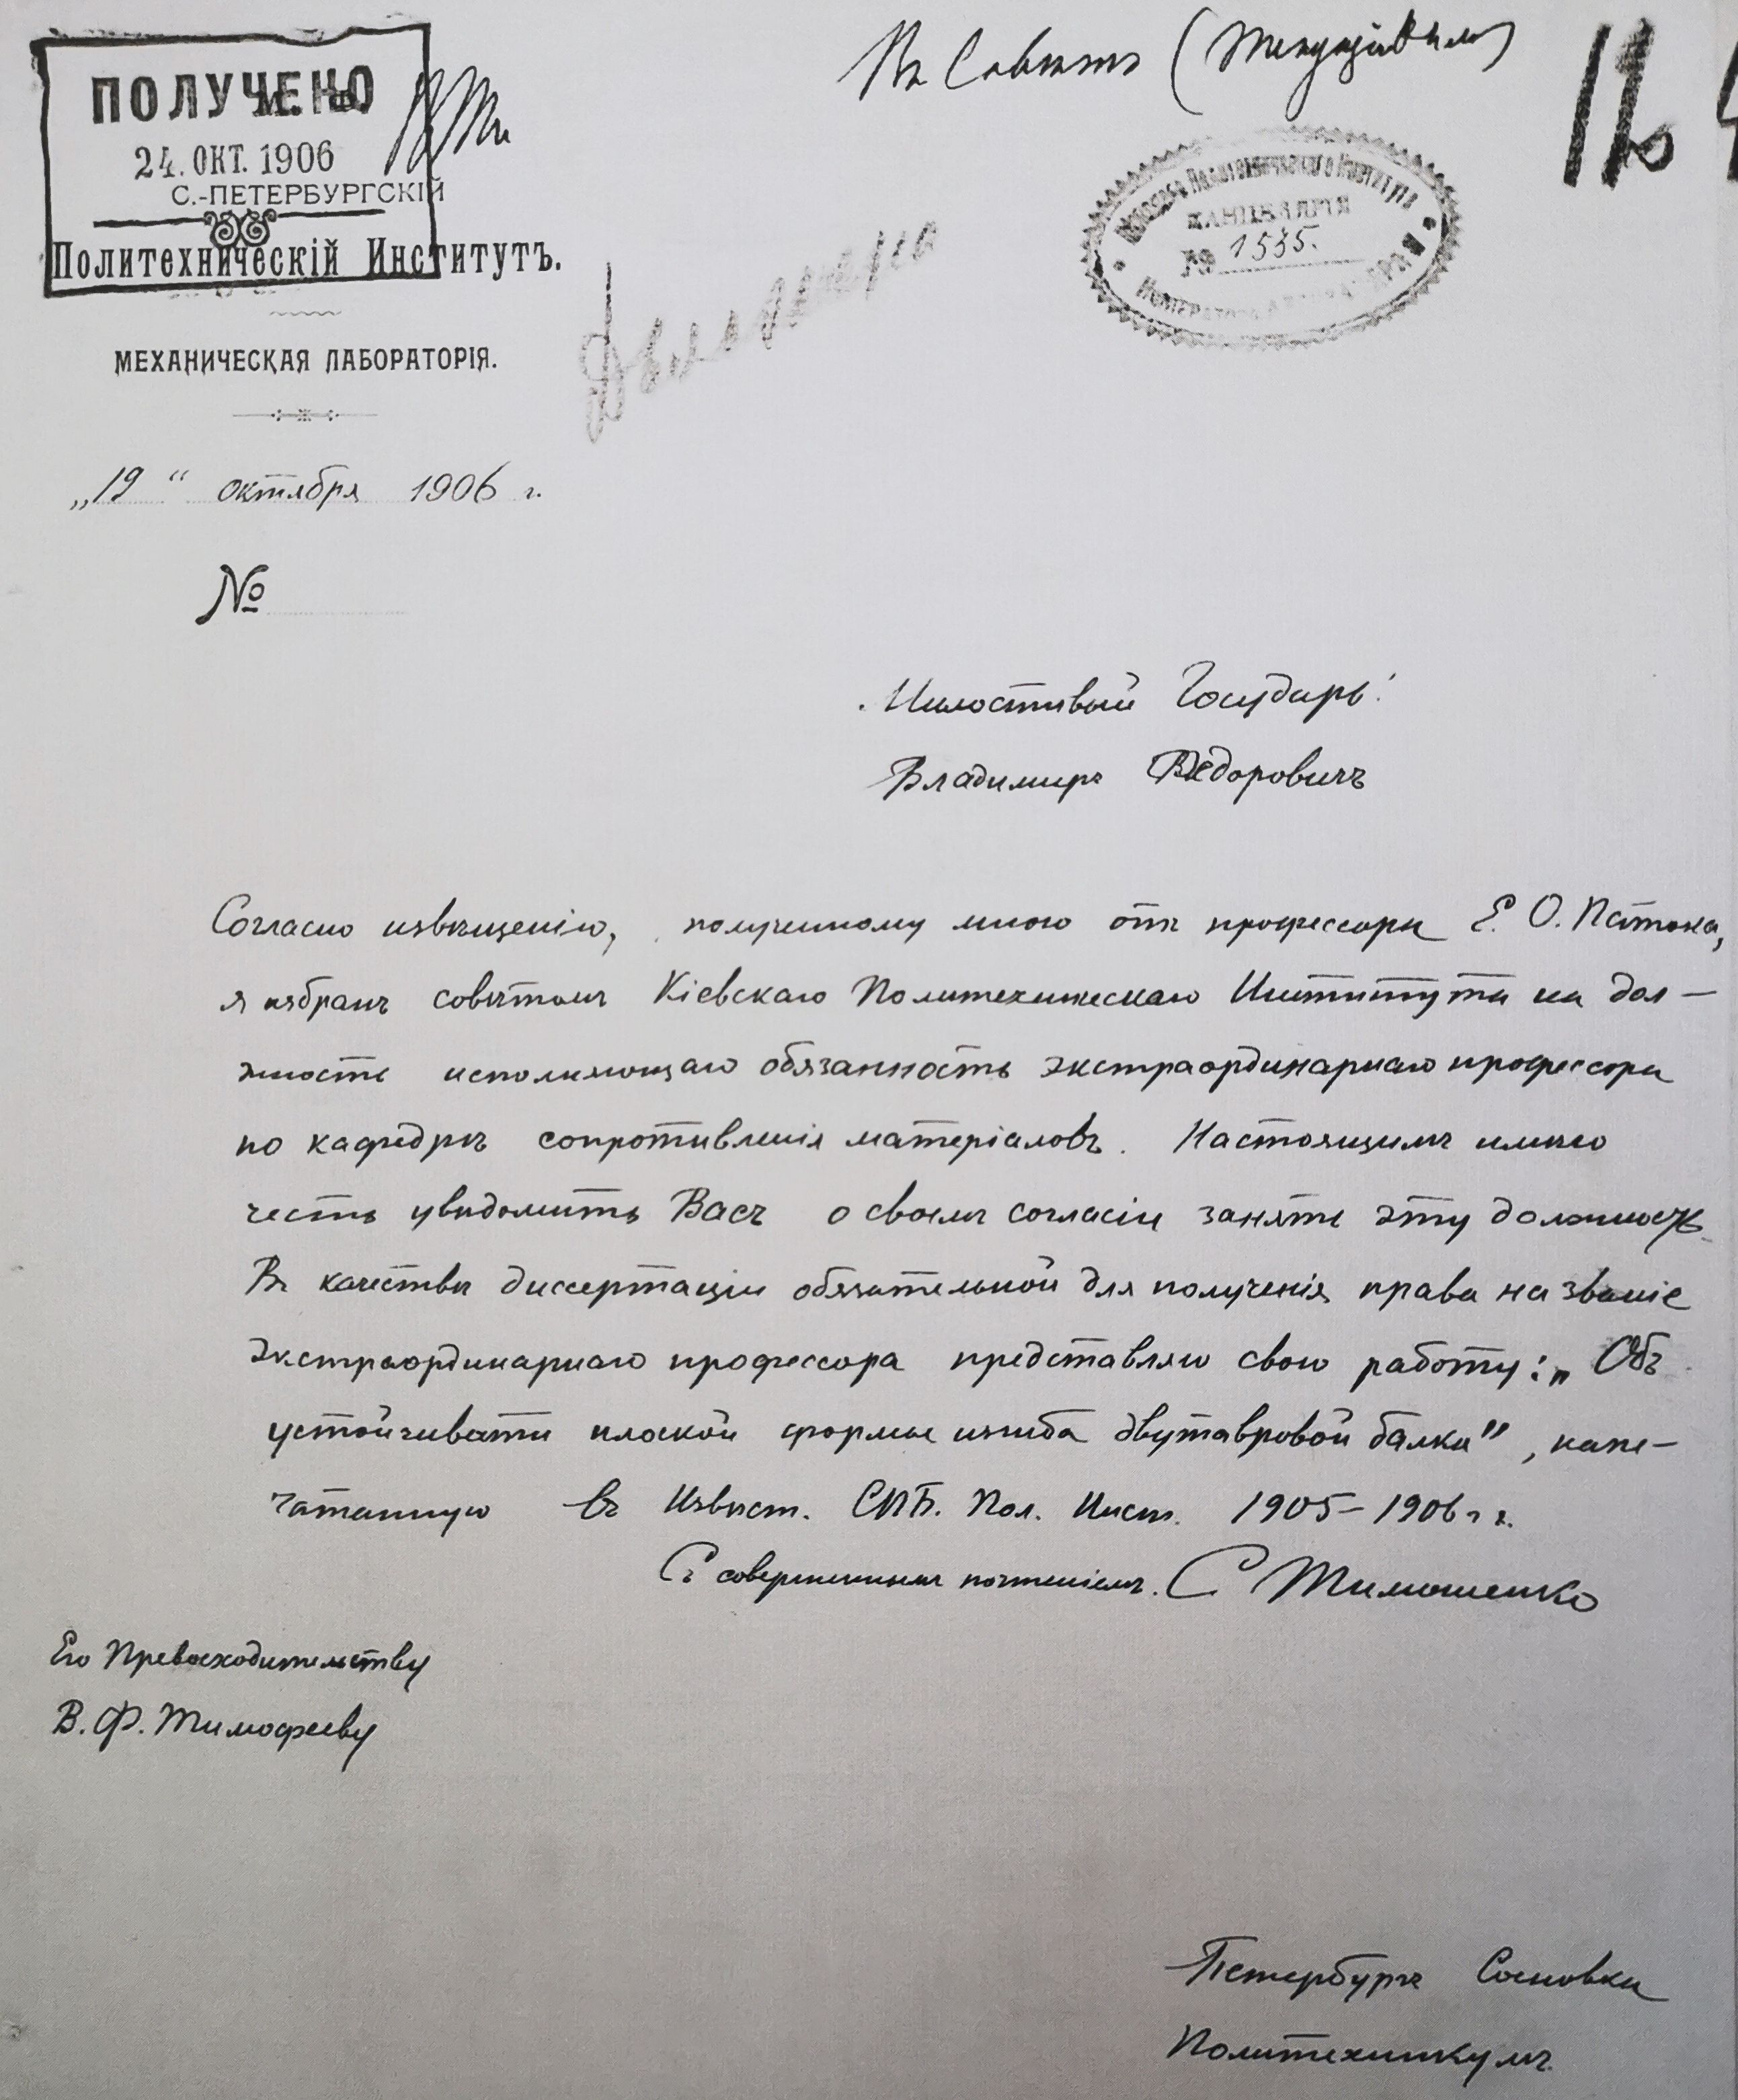 ПОЛУЧЕНО
24. ОКТ. 1906
С.-ПЕТЕРБУРГСКІЙ
Политехническій Институтъ.
МЕХАНИЧЕСКАЯ ЛАБОРАТОРІЯ.
„19“ октября 1906 г.
№
Въ Совѣтъ
Политехническаго Института
КАНЦЕЛЯРІЯ
№ 1535.
Милостивый Государь!
Владимиръ Федоровичъ
Согласно извѣщенію, полученному мною отъ профессора Е. О. Патона,
я избранъ совѣтомъ Кіевскаго Политехническаго Института на дол–
жность исполняющаго обязанность экстраординарнаго профессора
по кафедрѣ сопротивленія матеріаловъ. Настоящимъ имѣю
честь увѣдомить Васъ о своемъ согласіи занять эту должность.
Въ качествѣ диссертаціи обязательной для полученія права на званіе
экстраординарнаго профессора представляю свою работу: „Объ
устойчивости плоской формы изгиба двутавровой балки", напе–
чатанную въ Извѣст. СПБ. Пол. Инст. 1905–1906 г г.
Съ совершеннымъ почтеніемъ. С Тимошенко
Его Превосходительству
В. Ф. Тимофееву
Петербургъ Сосновка
Политехникумъ.